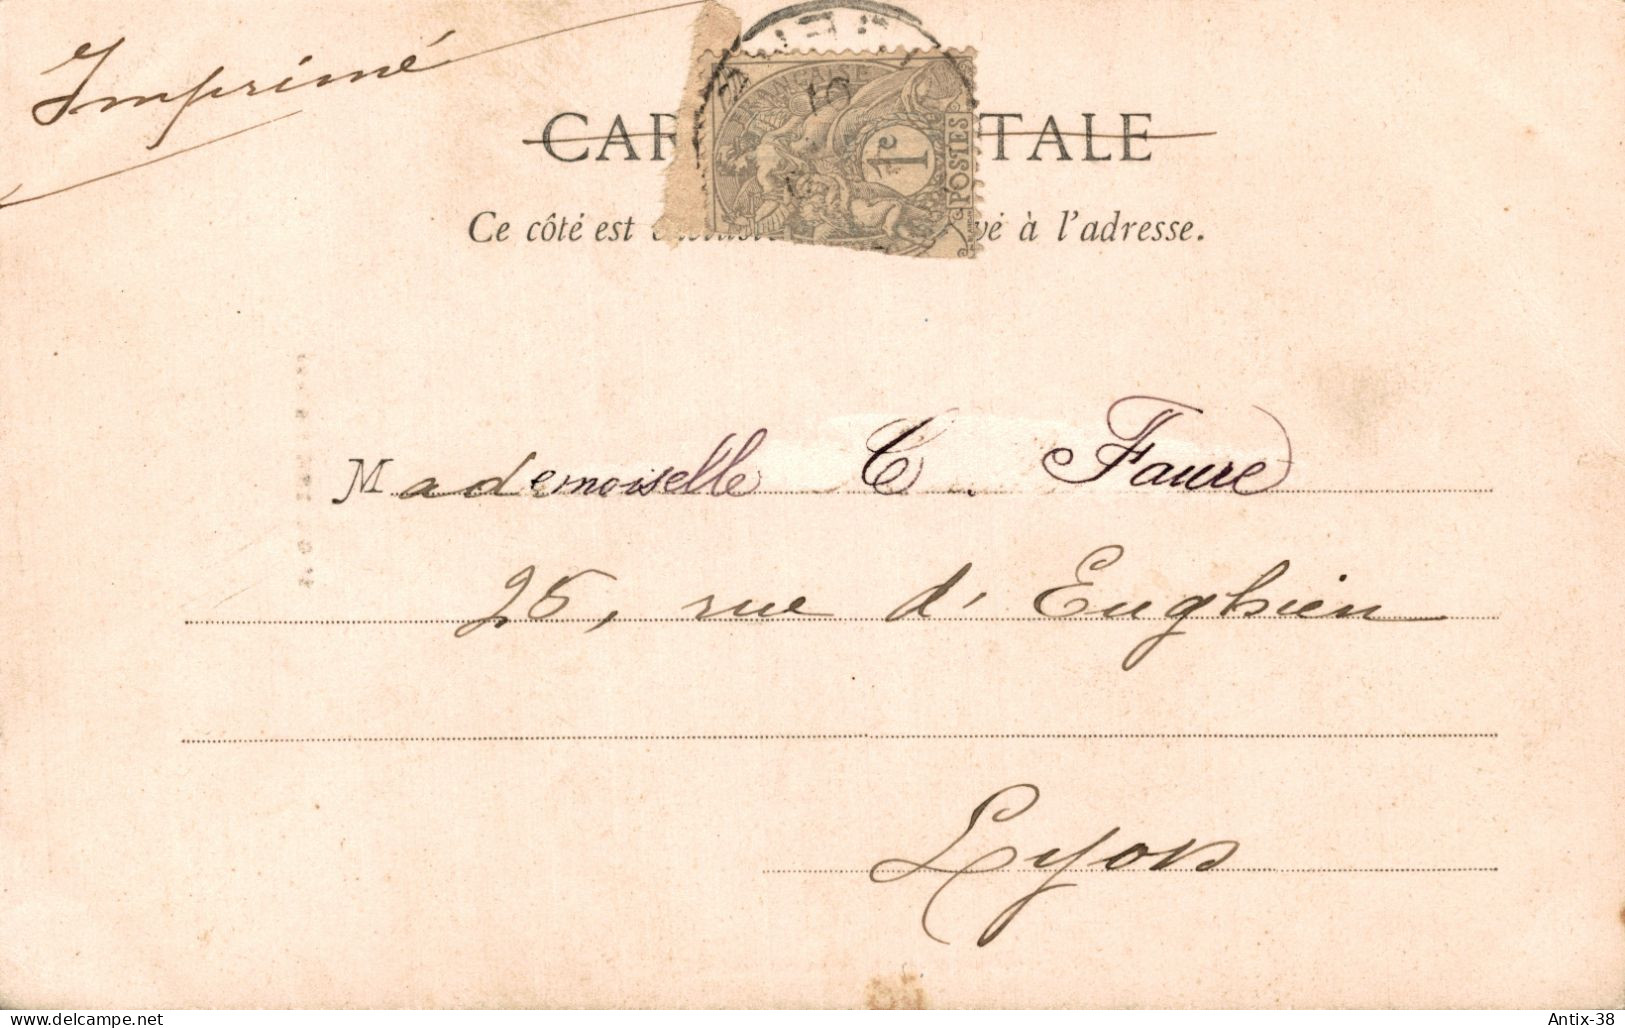 Imprimé
CAR TALE
Ce côté est vé à l'adresse.
FRANÇAISE
1c
POSTES
Mademoiselle C. Faure
25, rue d'Enghien
Lyon
Antix-38
www.delcampe.net